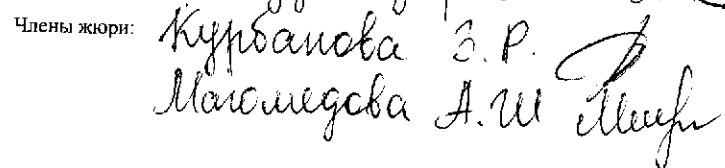 Члены жюри: Курбанова З. Р.
Магомедова А. Ш